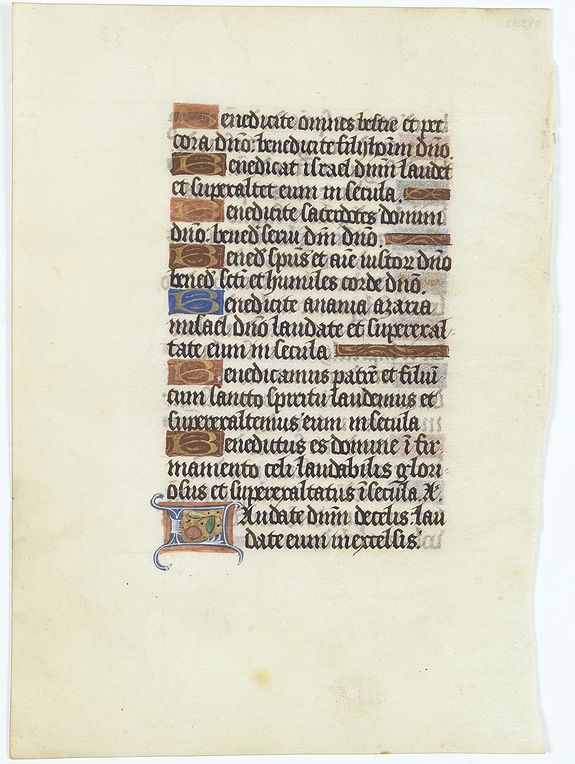 Benedicite omnes bestie et pec
cora dno: benedicite filij hoīm dno.
Benedicat israel dnm laudet
et superexaltet eum in secula.
Benedicite sacerdotes domini
dno. bened serui dni dno.
Bened spūs et aīe iustor dno
bened scti et humiles corde dno.
Benedicite anania azaria
misael dno laudate et superexal
tate eum in secula
Benedicamus patrē et filiū
cum sancto spiritu laudemus et
superexaltemus eum in secula
Benedictus es domine ī fir
mamento celi laudabilis glori
osus et superexaltatus ī secula.
Laudate dnm de celis. lau
date eum in excelsis.